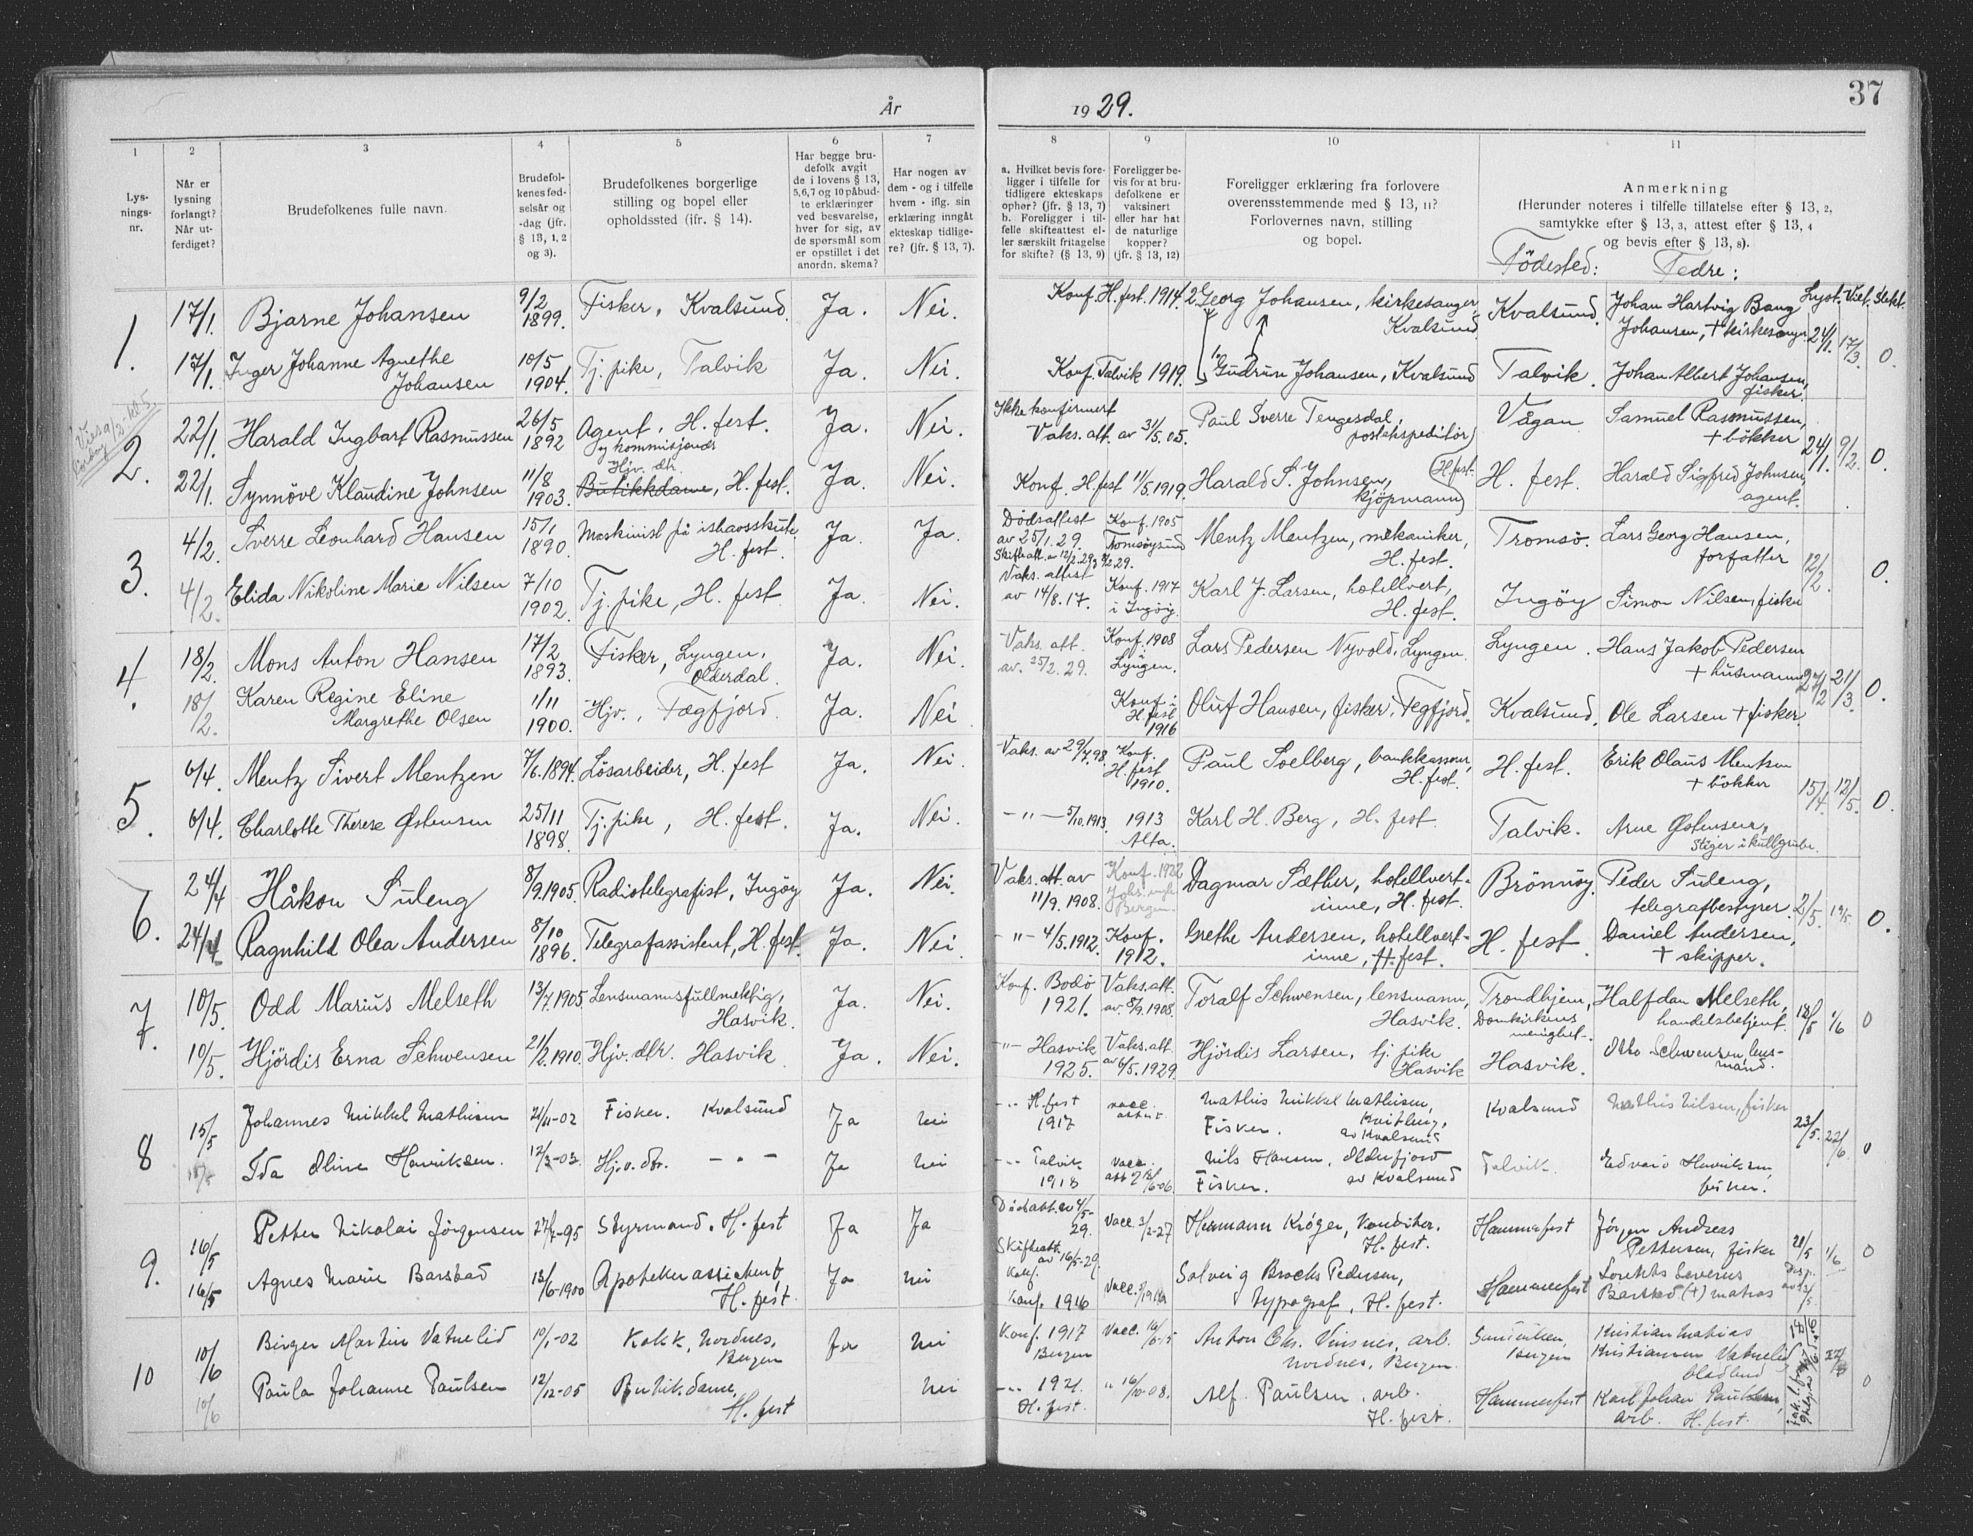 37
År
19 29.
1
2
3
4
5
6
7
8
9
10
11
Lys-
nings-
nr.
Når er
lysning
forlangt?
Når ut-
ferdiget?
Brudefolkenes fulle navn.
Brudefol-
kenes fød-
selsår og
-dag (jfr.
§ 13, 1, 2
og 3).
Brudefolkenes borgerlige
stilling og bopel eller
opholdssted (ifr. § 14).
Har begge bru-
defolk avgit
de i lovens § 13,
5,6,7 og 10 påbud-
te erklæringer
ved besvarelse,
hver for sig, av
de spørsmål som
er opstillet i det
anordn. skema?
Har nogen av
dem - og i tilfelle
hvem - iflg. sin
erklæring inngåt
ekteskap tidlige-
re? (jfr. § 13, 7).
a. Hvilket bevis fore-
ligger i tilfelle for
tidligere ekteskaps
ophør? (jfr. § 13, 7)
b. Foreligger i til-
felle skifteattest el-
ler særskilt fritagelse
for skifte? (§ 13, 9)
Foreligger be-
vis for at bru-
defolkene er
vaksinert
eller har hat
de naturlige
kopper?
(jfr. § 13, 12)
Foreligger erklæring fra forlovere
overensstemmende med § 13, 11?
Forlovernes navn, stilling
og bopel.
Anmerkning
(Herunder noteres i tilfelle tillatelse efter § 13, 2,
samtykke efter § 13, 3, attest efter § 13, 4
og bevis efter § 13, 8).
Födested: Fedre:
Lyst. Viet. Slekt.
1.
17/1. Bjarne Johansen 9/2 1899. Fisker, Kvalsund. Ja. Nei. Konf. H.fest. 1914. 2. Georg Johansen, kirkesanger, Kvalsund. Kvalsund. Johan Hartvig Bang Johansen, + kirkesanger 24/1. 17/3 0.
17/1. Inger Johanne Agnethe Johansen 10/5 1904. Tj. pike, Talvik Ja. Nei. Konf. Talvik 1919. 1. Gudrun Johansen, Kvalsund Talvik. Johan Albert Johansen, fisker.
2.
22/1. Harald Ingbart Rasmussen 26/5 1892 Agent, H. fest. og kommisjonær Ja. Nei. Ikke konfirmert Vaks. att. av 31/5.05. Paul Sverre Tengesdal, postekspeditör, Vågan Samuel Rasmussen, + bökker 24/1. 9/2. 0.
22/1. Synnöve Klaudine Johnsen 11/8 1903. Hjv. dtr. Butikkdame, H. fest. Ja. Nei. Konf. H.fest 11/5.1919. Harald S. Johnsen, kjöpmann H.fest. H. fest. Harald Sigfred Johnsen, agent.
3.
4/2. Sverre Leonhard Hansen 15/1 1890. Maskinist på ishavsskute, H. fest. Ja. Ja. Dödsattest av 25/1.29. Skifteatt. av 12/2.29 Konf. 1905 Tromsöysund Mentz Mentzen, mekaniker, H. fest. Tromsö. Lars Georg Hansen, forfatter 12/2 0.
4/2. Elida Nikoline Marie Nilsen 7/10 1902. Tj. pike, H. fest. Ja. Nei. Vaks. attest av 14/8.17. Konf. 1917 i Ingöy. Karl J. Larsen, hotellvert, H. fest. Ingöy Simon Nilsen, fisker
4.
18/2. Mons Anton Hansen 17/2 1893. Fisker, Lyngen, Olderdal. Ja. Nei. Vaks. att. av. 25/2.29. Konf. 1908 Lyngen. Lars Pedersen Nyvold, Lyngen. Lyngen. Hans Jakob Pedersen + husmann 27/2 21/3 0.
18/2. Karen Regine Eline Margrethe Olsen 1/11 1900. Hjv., Fægfjord. Ja. Nei Konf. i H. fest 1916 Oluf Hansen, fisker, Fegfjord. Kvalsund. Ole Larsen + fisker.
5.
6/4. Mentz Sivert Mentzen 7/6.1894. Lösarbeider, H. fest Ja. Nei. Vaks. av 29/7.98. Konf. H. fest 1910. Paul Soelberg, bankkasserer, H. fest. H. fest. Erik Olaus Mentzen + bökker 15/4 12/5. 0.
6/4. Charlotte Therese Østensen 25/11 1898. Tj. pike, H. fest. Ja. Nei. — " — 5/10.1913. 1913 Alta. Karl H. Berg, H. fest. Talvik. Arne Østensen, Stiger i kullgrube.
6.
24/4 Håkon Suleng 8/9.1905. Radiotelegrafist, Ingöy Ja. Nei. Vaks. att. av 11/9.1908. Konf. 1922 Bergen. Dagmar Sæther, hotellvert-inne, H. fest. Brönnöy. Peder Suleng, telegrafbestyrer. 2/5. 19/5 0.
24/4. Ragnhild Olea Andersen 8/10 1896. Telegrafassistent, H. fest. Ja. Nei - " - 4/5.1912. Konf. 1912. Grethe Andersen, hotellvert-inne, H. fest. H. fest. Daniel Andersen, + skipper.
7.
10/5. Odd Marius Melseth 13/7.1905. Lensmannsfullmektig, Hasvik. Ja. Nei. Konf. Bodö 1921. Vaks. att. av. 8/9.1908. Toralf Schwensen, lensmann, Hasvik. Trondhjem, Domkirkens menighet. Halfdan Melseth, handelsbetjent. 18/5 1/6 0
10/5. Hjördis Erna Schwensen 21/2.1910. Hjv. dtr. Hasvik Ja. Nei. -"- Hasvik 1925. Vaks. att. av 6/5.1929. Hjördis Larsen, tj. pike Hasvik Hasvik. Otto Schwensen, lens-mand.
8
15/5 Johannes Mikkel Mathisen 21/11-02 Fisker. Kvalsund Ja nei -"- H. fest 1917 vacc. attest Mathis Mikkel Mathisen, Fisker. av Kvalsund Kvalsund Mathis Nilsen, fisker 23/5. 22/6. 0
15/5 Ida Oline Henriksen. 12/3-03. Hjv. dtr. - " - Ja nei -"- Talvik 1918 vacc. Nils Hansen, Oldefjord Fisker. av Kvalsund Talvik. Edvard Henriksen, fisker.
9.
16/5 Petter Nikolai Jörgensen 27/7-95 Styrmand. H. fest Ja Ja Dödsatt. av 4/5-29. Skifteatt. av 16/5-29. Konf. Vacc. 2/2-27 Hermann Kröger, Konditor. H. fest. Hammerfest Jörgen Andreas Pettersen, fisker 21/5 1/6 0
16/5 Agnes Marie Barstad 13/6-1900 Apotekerassistent, H. fest. Ja nei Konf. 1916 Vacc. Solveig Brochs Pedersen, typograf, H. fest. Hammerfest Severus Barstad (+) matros
10
10/6 Birger Martin Vatnelid 10/1-02 Kokk, Nordnes, Bergen Ja nei Konf. 1917 Bergen Vacc. Anton Chr. Vinsnes, arb. Nordnes, Bergen. Bergen Kristian Matias Kristiansen Vatnelid 0
10/6 Paula Johanne Paulsen 12/12-05 Butik.dame, H. fest nei -"- 1921. H. fest. " 16/10-08. Alf. Paulsen, arb. H. fest. Hammerfest Karl Johan Paulsen, arb. H. fest.